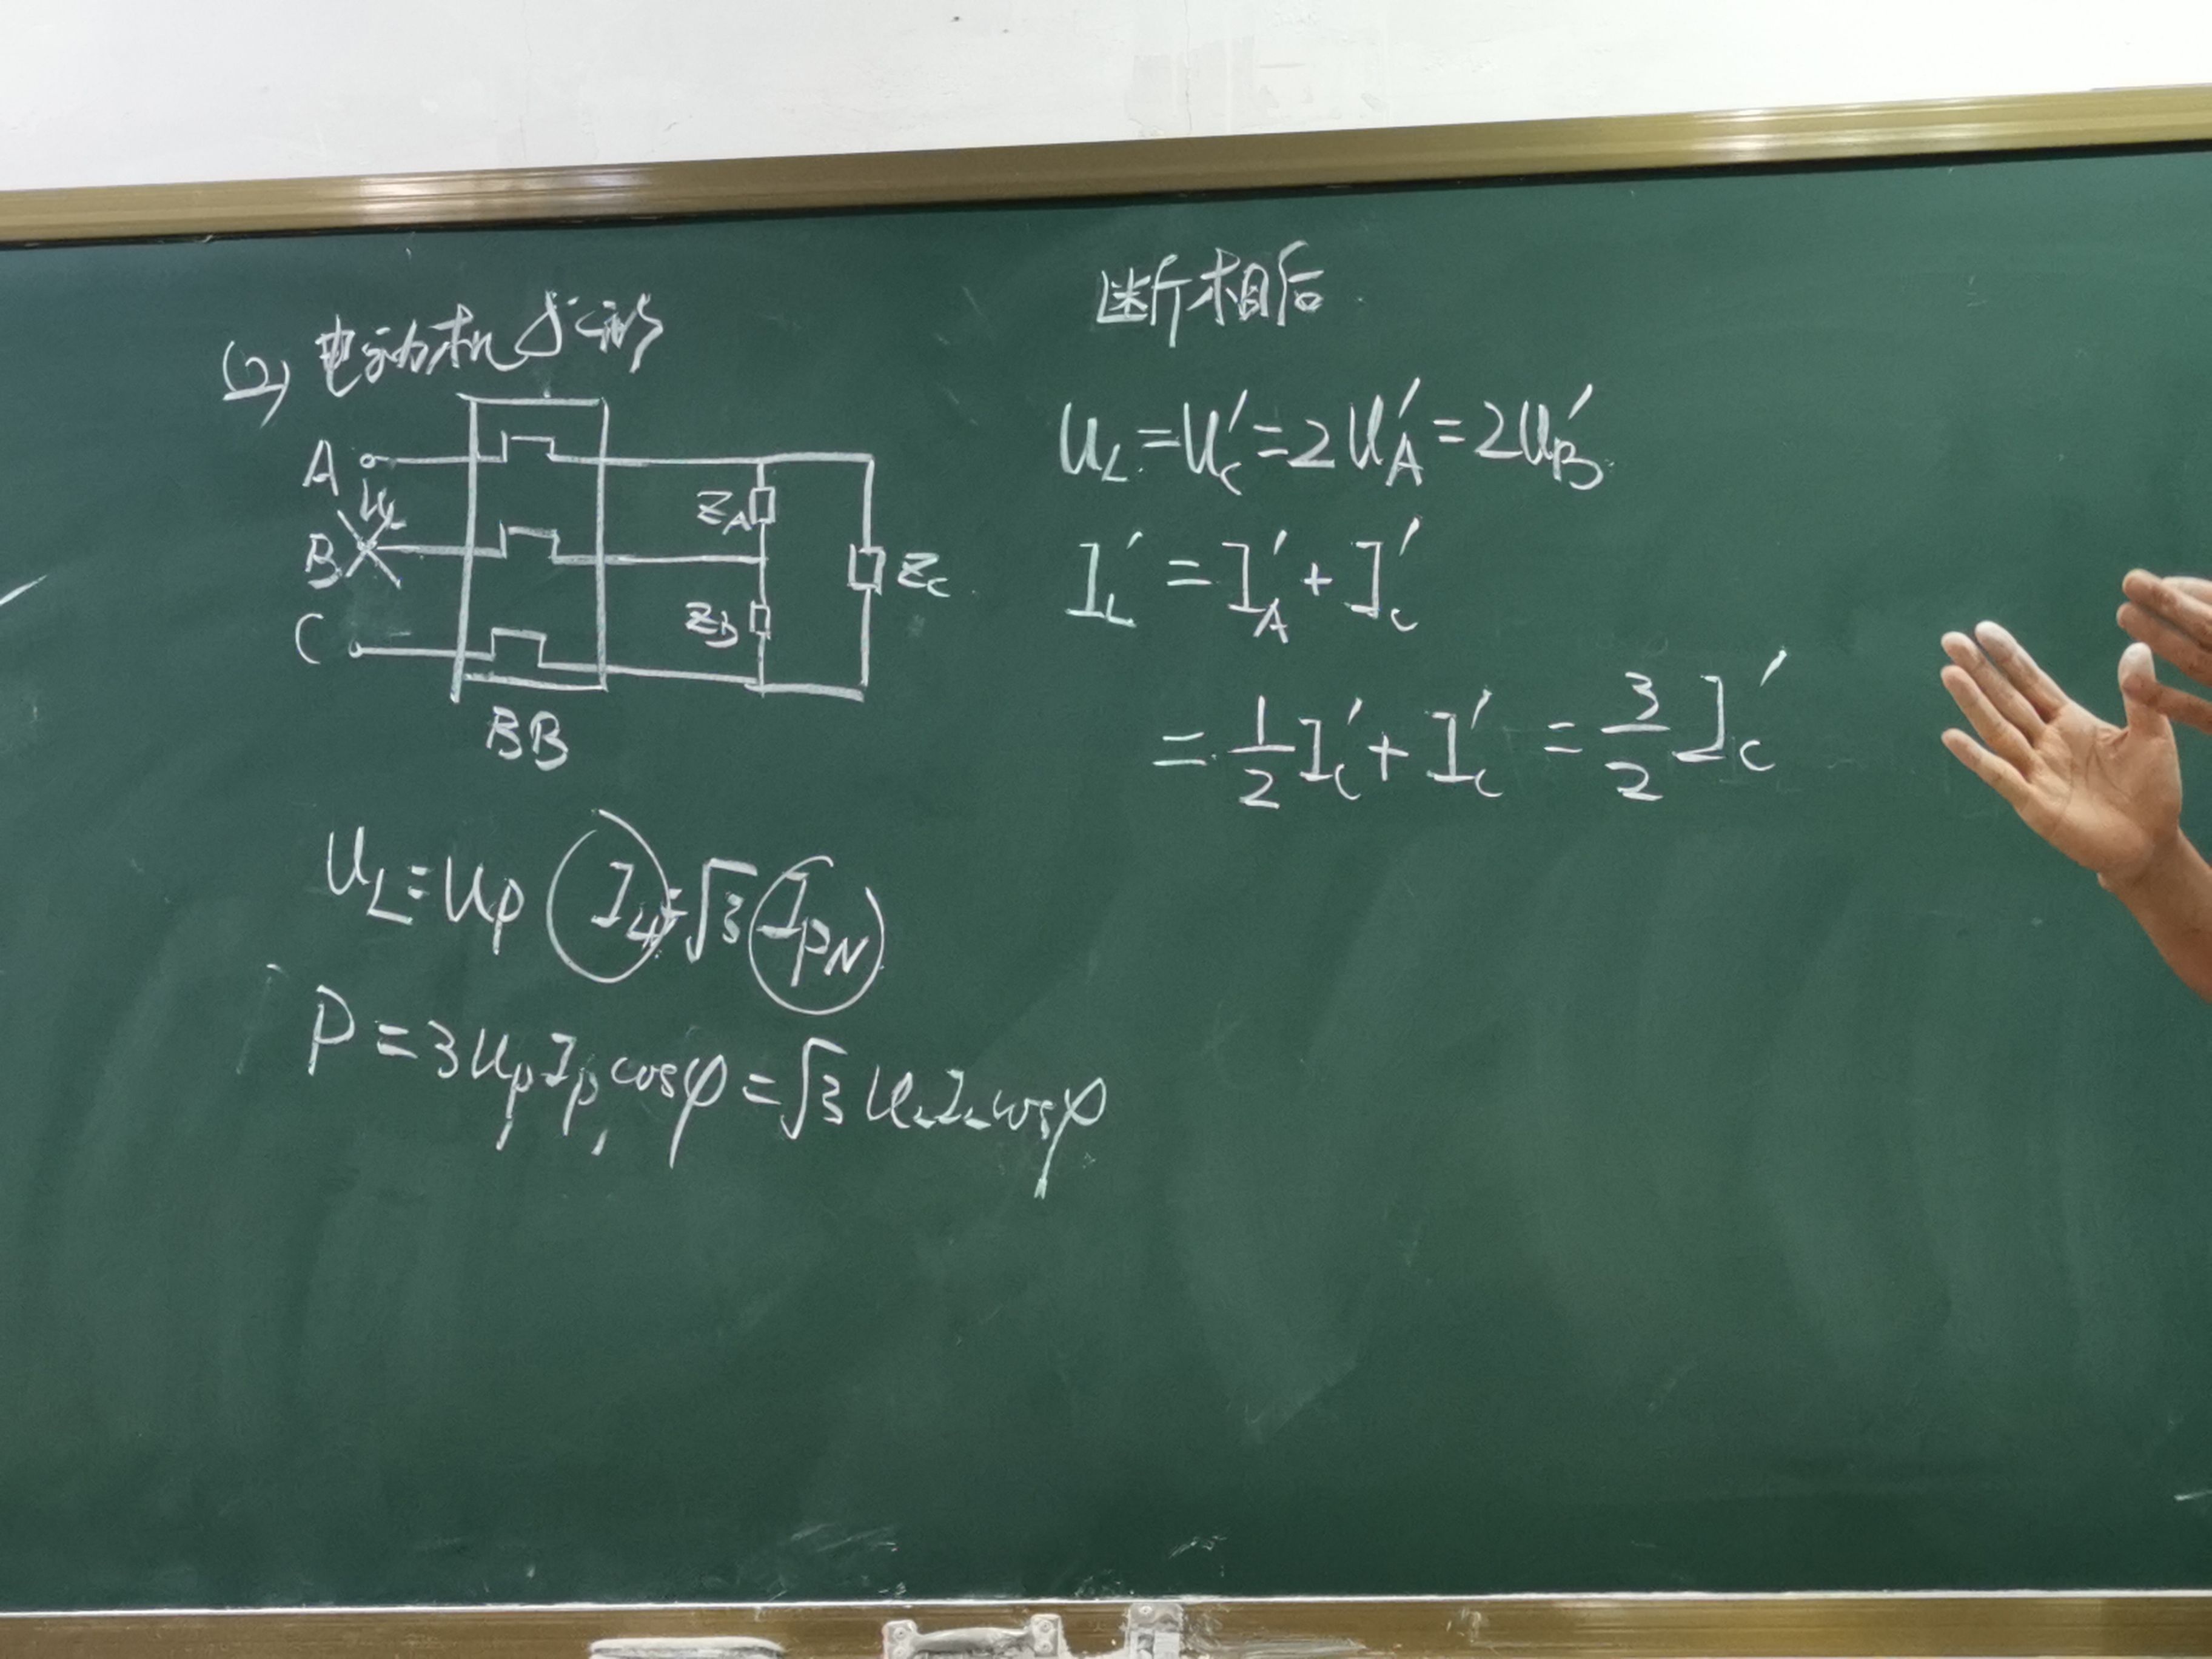 (2) 电动机 形
A
U_L
B
C
Z_A
Z_B
Z_C
BB
U_L=U_P I_L=√3 I_PN
P=3U_P I_P cosφ=√3 U_L I_L cosφ
断相后
U_L=U_C'=2U_A'=2U_B'
I_L'=I_A'+I_C'
=1/2 I_C'+I_C'=3/2 I_C'